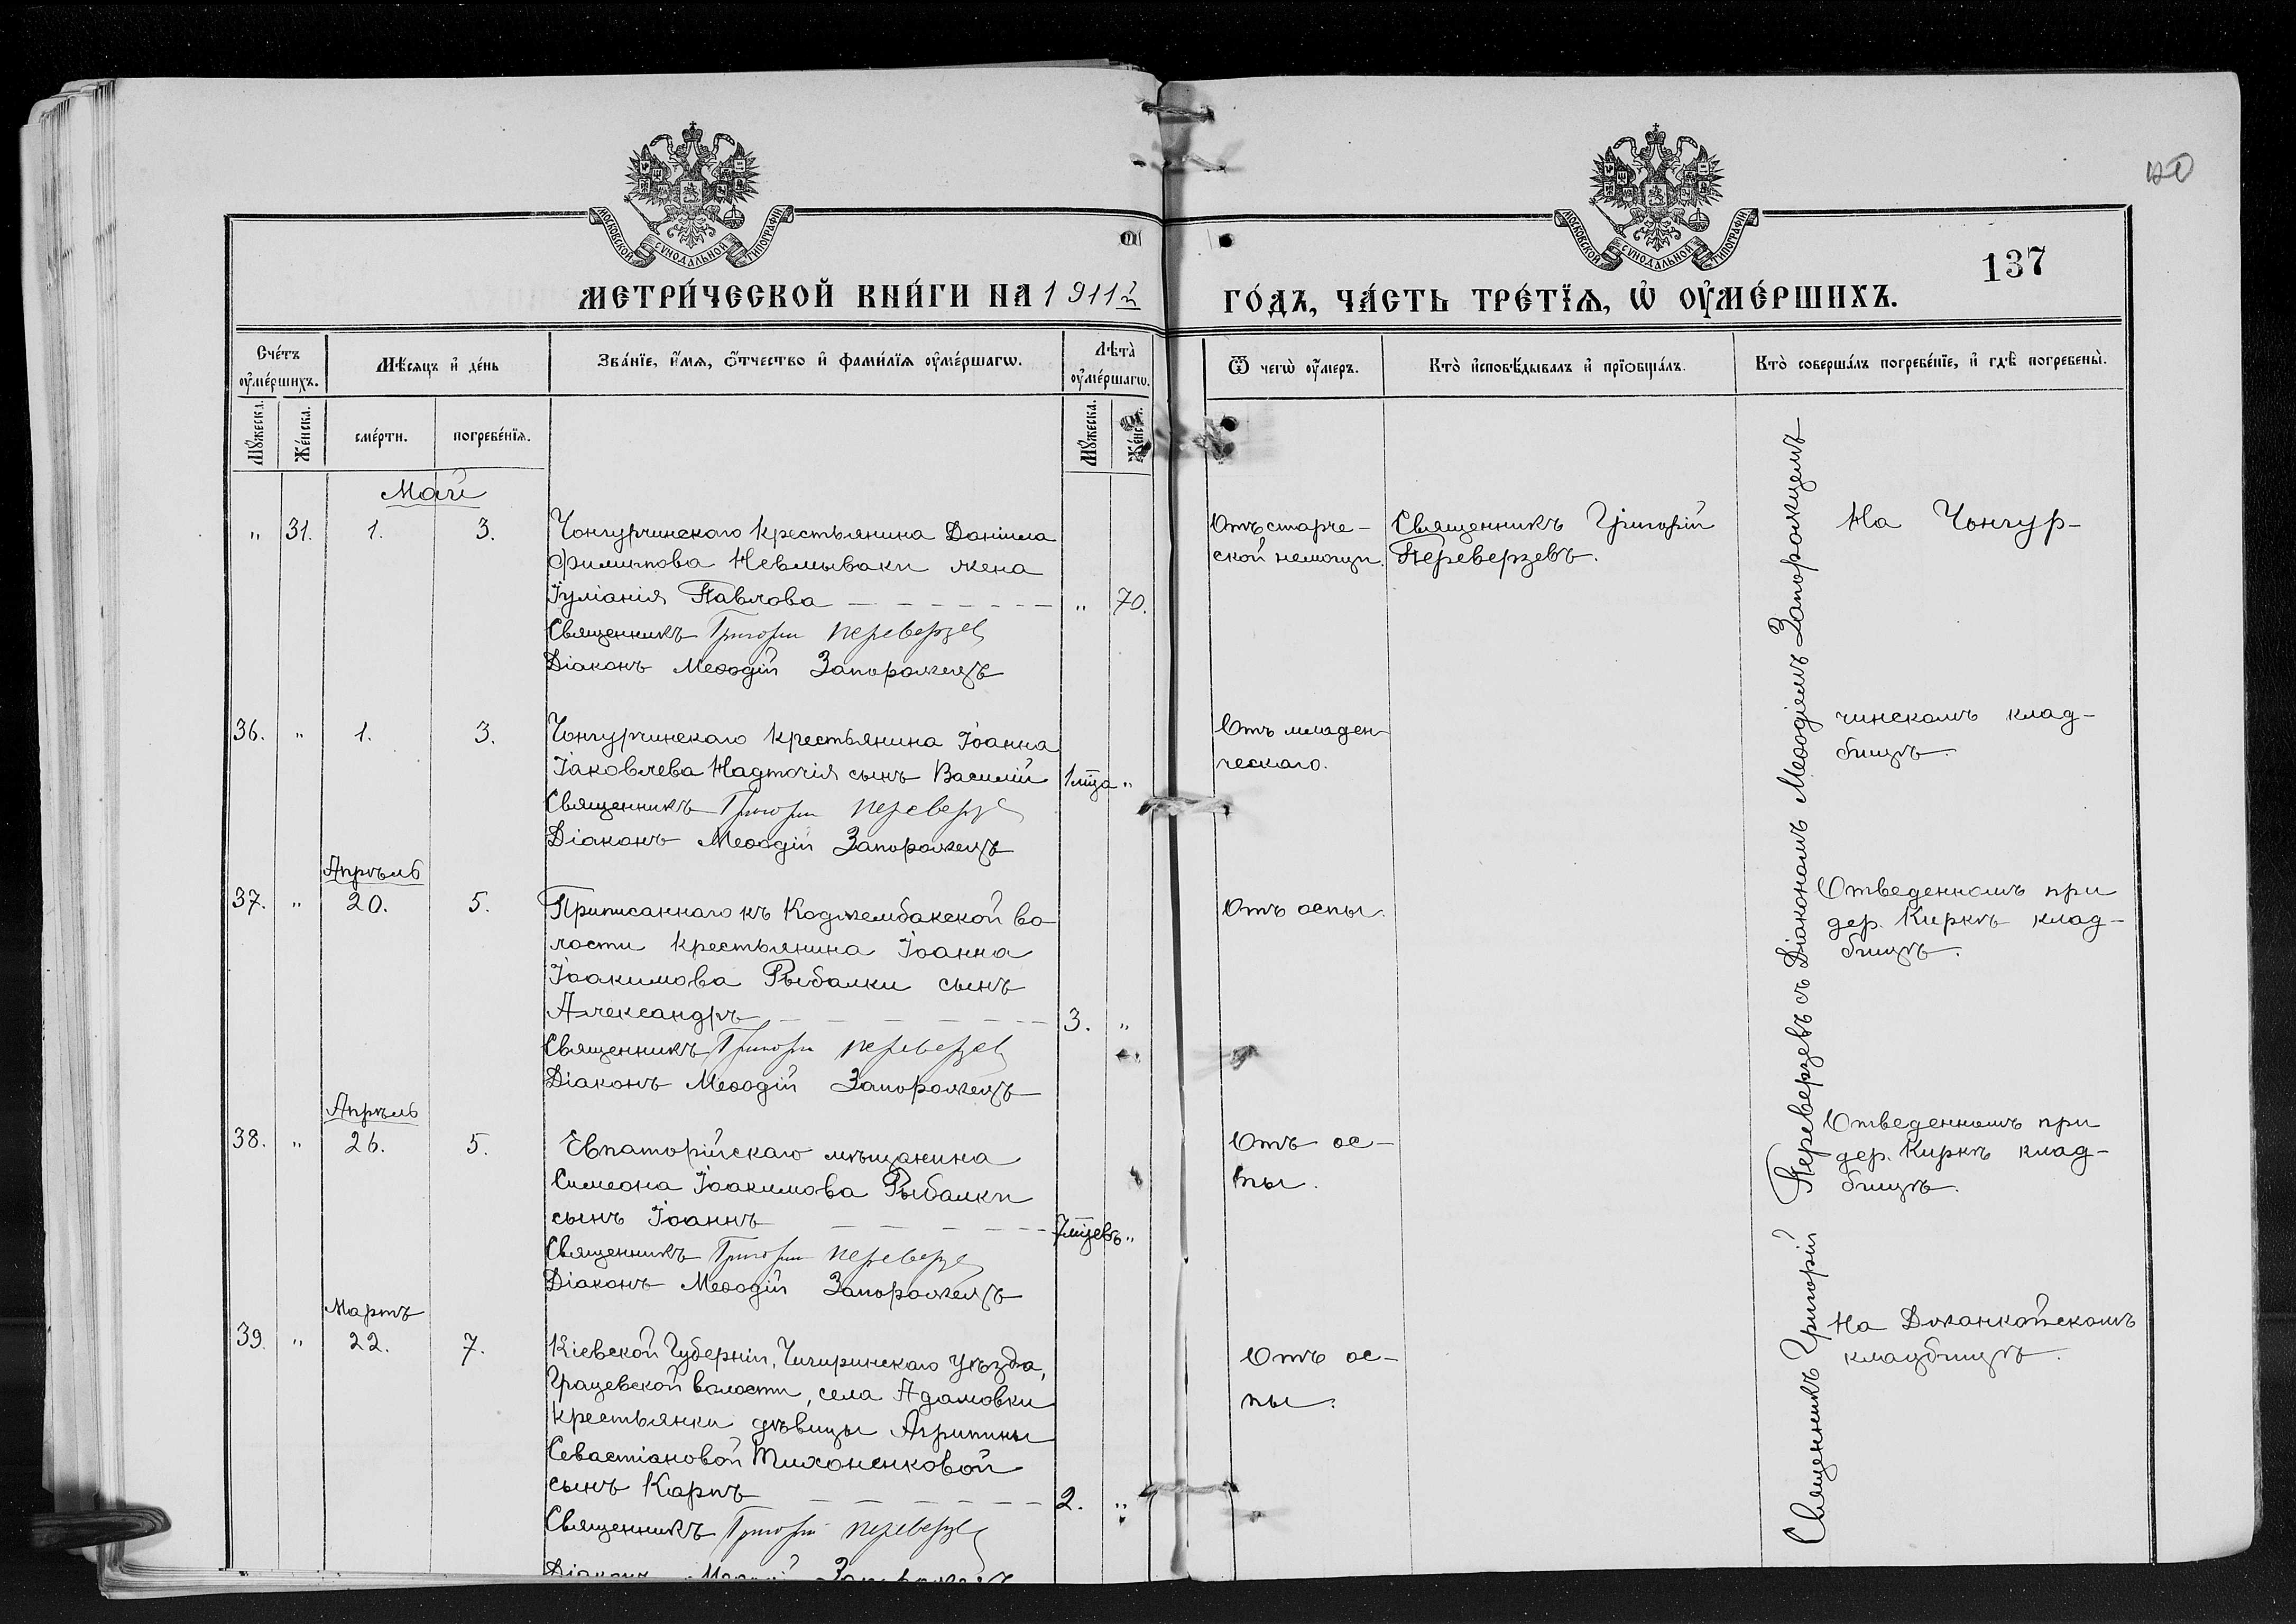 МОСКОВСКОЙ СУНОДАЛЬНОЙ ТИПОГРАФІИ
МОСКОВСКОЙ СУНОДАЛЬНОЙ ТИПОГРАФІИ
137
МЕТРИ́ЧЕСКОЙ КНИ́ГИ НА 1911й
ГО́ДЪ, ЧА́СТЬ ТРЕ́ТЇѦ, Ѡ҆ ОУ҆МЕ́РШИХЪ.
Сче́тъ оу҆ме́ршихъ.
Мѣ́сяцъ и҆ де́нь
Зва́нїе, и҆́мя, ѻ҆́тчество и҆ фами́лїя оу҆ме́ршагѡ.
Лѣта̀ оу҆ме́ршагѡ.
Ѿ чегѡ̀ оу҆́меръ.
Кто̀ и҆сповѣ́дывалъ и҆ прїѻбща́лъ.
Кто̀ соверша́лъ погребе́нїе, и҆ гдѣ̀ погребены̀.
Мꙋ́жеска.
Же́нска.
сме́рти.
погребе́нїя.
Мꙋ́жеска.
Же́нска.
Май
" 31. 1. 3. Чонгурчинскаго крестьянина Даніила
Филиппова Невмываки жена
Іуліанія Павлова " 70.
Священникъ Григорій Переверзев
Діаконъ Меѳодій Запорожецъ
Отъ старче-
ской немощи.
Священникъ Григорій
Переверзевъ.
На Чонгур-
36. " 1. 3. Чонгурчинскаго крестьянина Іоанна
Іаковлева Надточія сынъ Василій 1 мца "
Священникъ Григорій Переверзев
Діаконъ Меѳодій Запорожецъ
Отъ младен-
ческаго.
чинскомъ клад-
бищѣ.
Апрѣль
37. " 20. 5. Приписаннаго къ Коджамбакской во-
лости крестьянина Іоанна
Іоакимова Рыбалки сынъ
Александръ 3. "
Священникъ Григорій Переверзев
Діаконъ Меѳодій Запорожецъ
Отъ оспы.
Отведенномъ при
дер. Киркѣ клад-
бищѣ.
Апрѣль
38. " 26. 5. Евпаторійскаго мѣщанина
Симеона Іоакимова Рыбалки
сынъ Іоаннъ 7 мцевъ "
Священникъ Григорій Переверзев
Діаконъ Меѳодій Запорожецъ
Отъ ос-
пы.
Отведенномъ при
дер. Киркѣ клад-
бищѣ.
Мартъ
39. " 22. 7. Кіевской Губерніи, Чигиринскаго уѣзда,
волости, села Адамовки
крестьянки дѣвицы Агрипины
Севастіановой Тихоненковой
сынъ Карпъ 2. "
Священникъ Григорій Переверзев
Діаконъ Меѳодій Запорожецъ
Отъ ос-
пы.
На Джанкойскомъ
кладбищѣ.
Священникъ Григорій Переверзевъ съ Діакономъ Меѳодіемъ Запорожцемъ